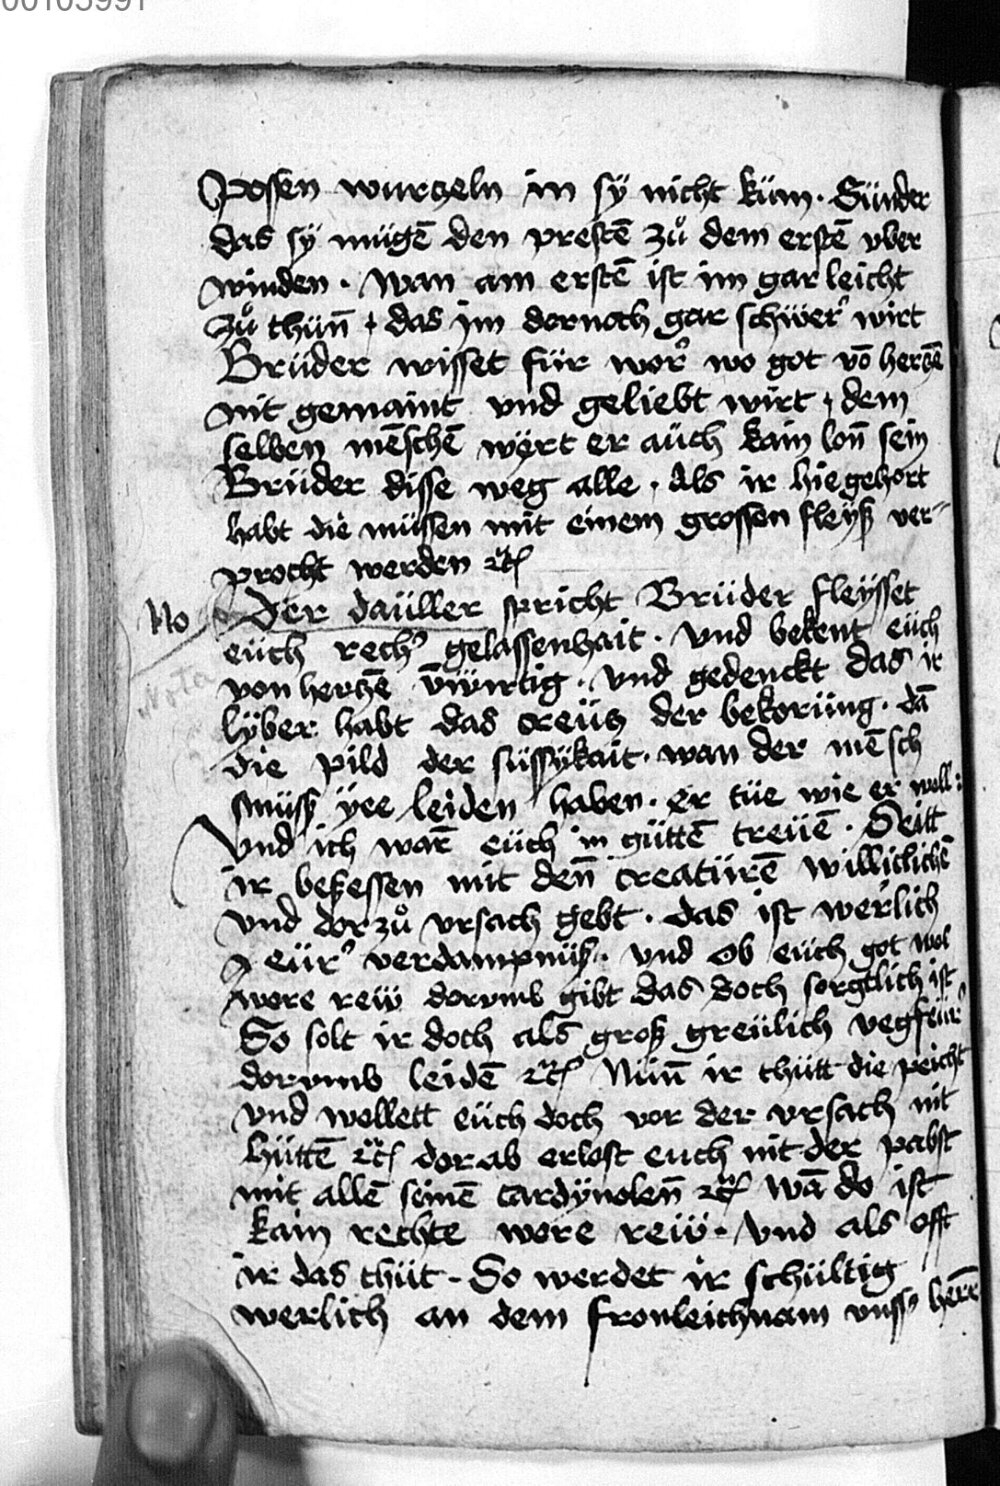 00105991
Possen wurczeln in sÿ nicht küm. Sünder
das sÿ mügē den prestē zů dem erstē vber
winden. Wan am erstē ist im gar leicht
zů thün̄, das im dornoch gar schwer wirt
Brüder wisset für wor wo got vō herczē
nit gemaint vnd geliebt wirt, dem
selben mēschē wert er aüch kain lon̄ sein
Brüder disse weg alle. Als ir hie gehort
habt die müssen mit einem grossen fleÿß ver-
procht werden ꝛc̃
No Der daüller spricht Brüder fleÿsset
eüch rech' gelassenhait. Vnd bekent eüch
Nota von herczē vnd gedenckt das ir
lÿber habt das creücz der bekorüng. dā
die pild der süssÿkait. wan der mēsch
müß ÿee leiden haben. er tüe wie er well:
Vnd ich war̄ eüch in güttē treüē. Seitt
ir beßessen mit den̄ creatürē willichlichē
vnd dor zů vrsach gebt. das ist werlich
eür' verdampnüß. vnd ob eüch got wol
wore reẅ dorumb gibt das doch sorgtlich ist
So solt ir doch als groß greülich vegfeür
dorumb leidē ꝛc̃ Nün̄ ir thütt die peicht
vnd wellett eüch doch vor der vrsach nit
hüttē ꝛc̃ dor ab erlost euch nit der pabst
mit allē seinē cardÿnolen̄ ꝛc̃ Wā do ist
kain rechte wore reẅ. Vnd als offt
ir das thüt. So werdet ir schültig
werlich an dem fronleichnam vnss' herr̄